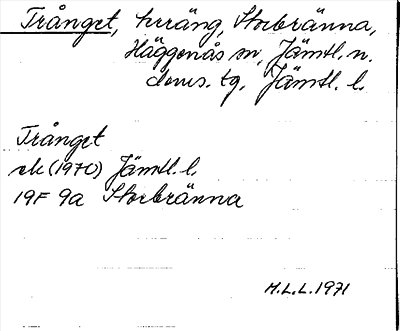 Trånget, huräng, Storbränna,
Häggenås sn, Jämtl. n.
doms. tg, Jämtl. l.
Trånget
ek (1970) Jämtl. l.
19F 9a Storbränna
M.L.L. 1971